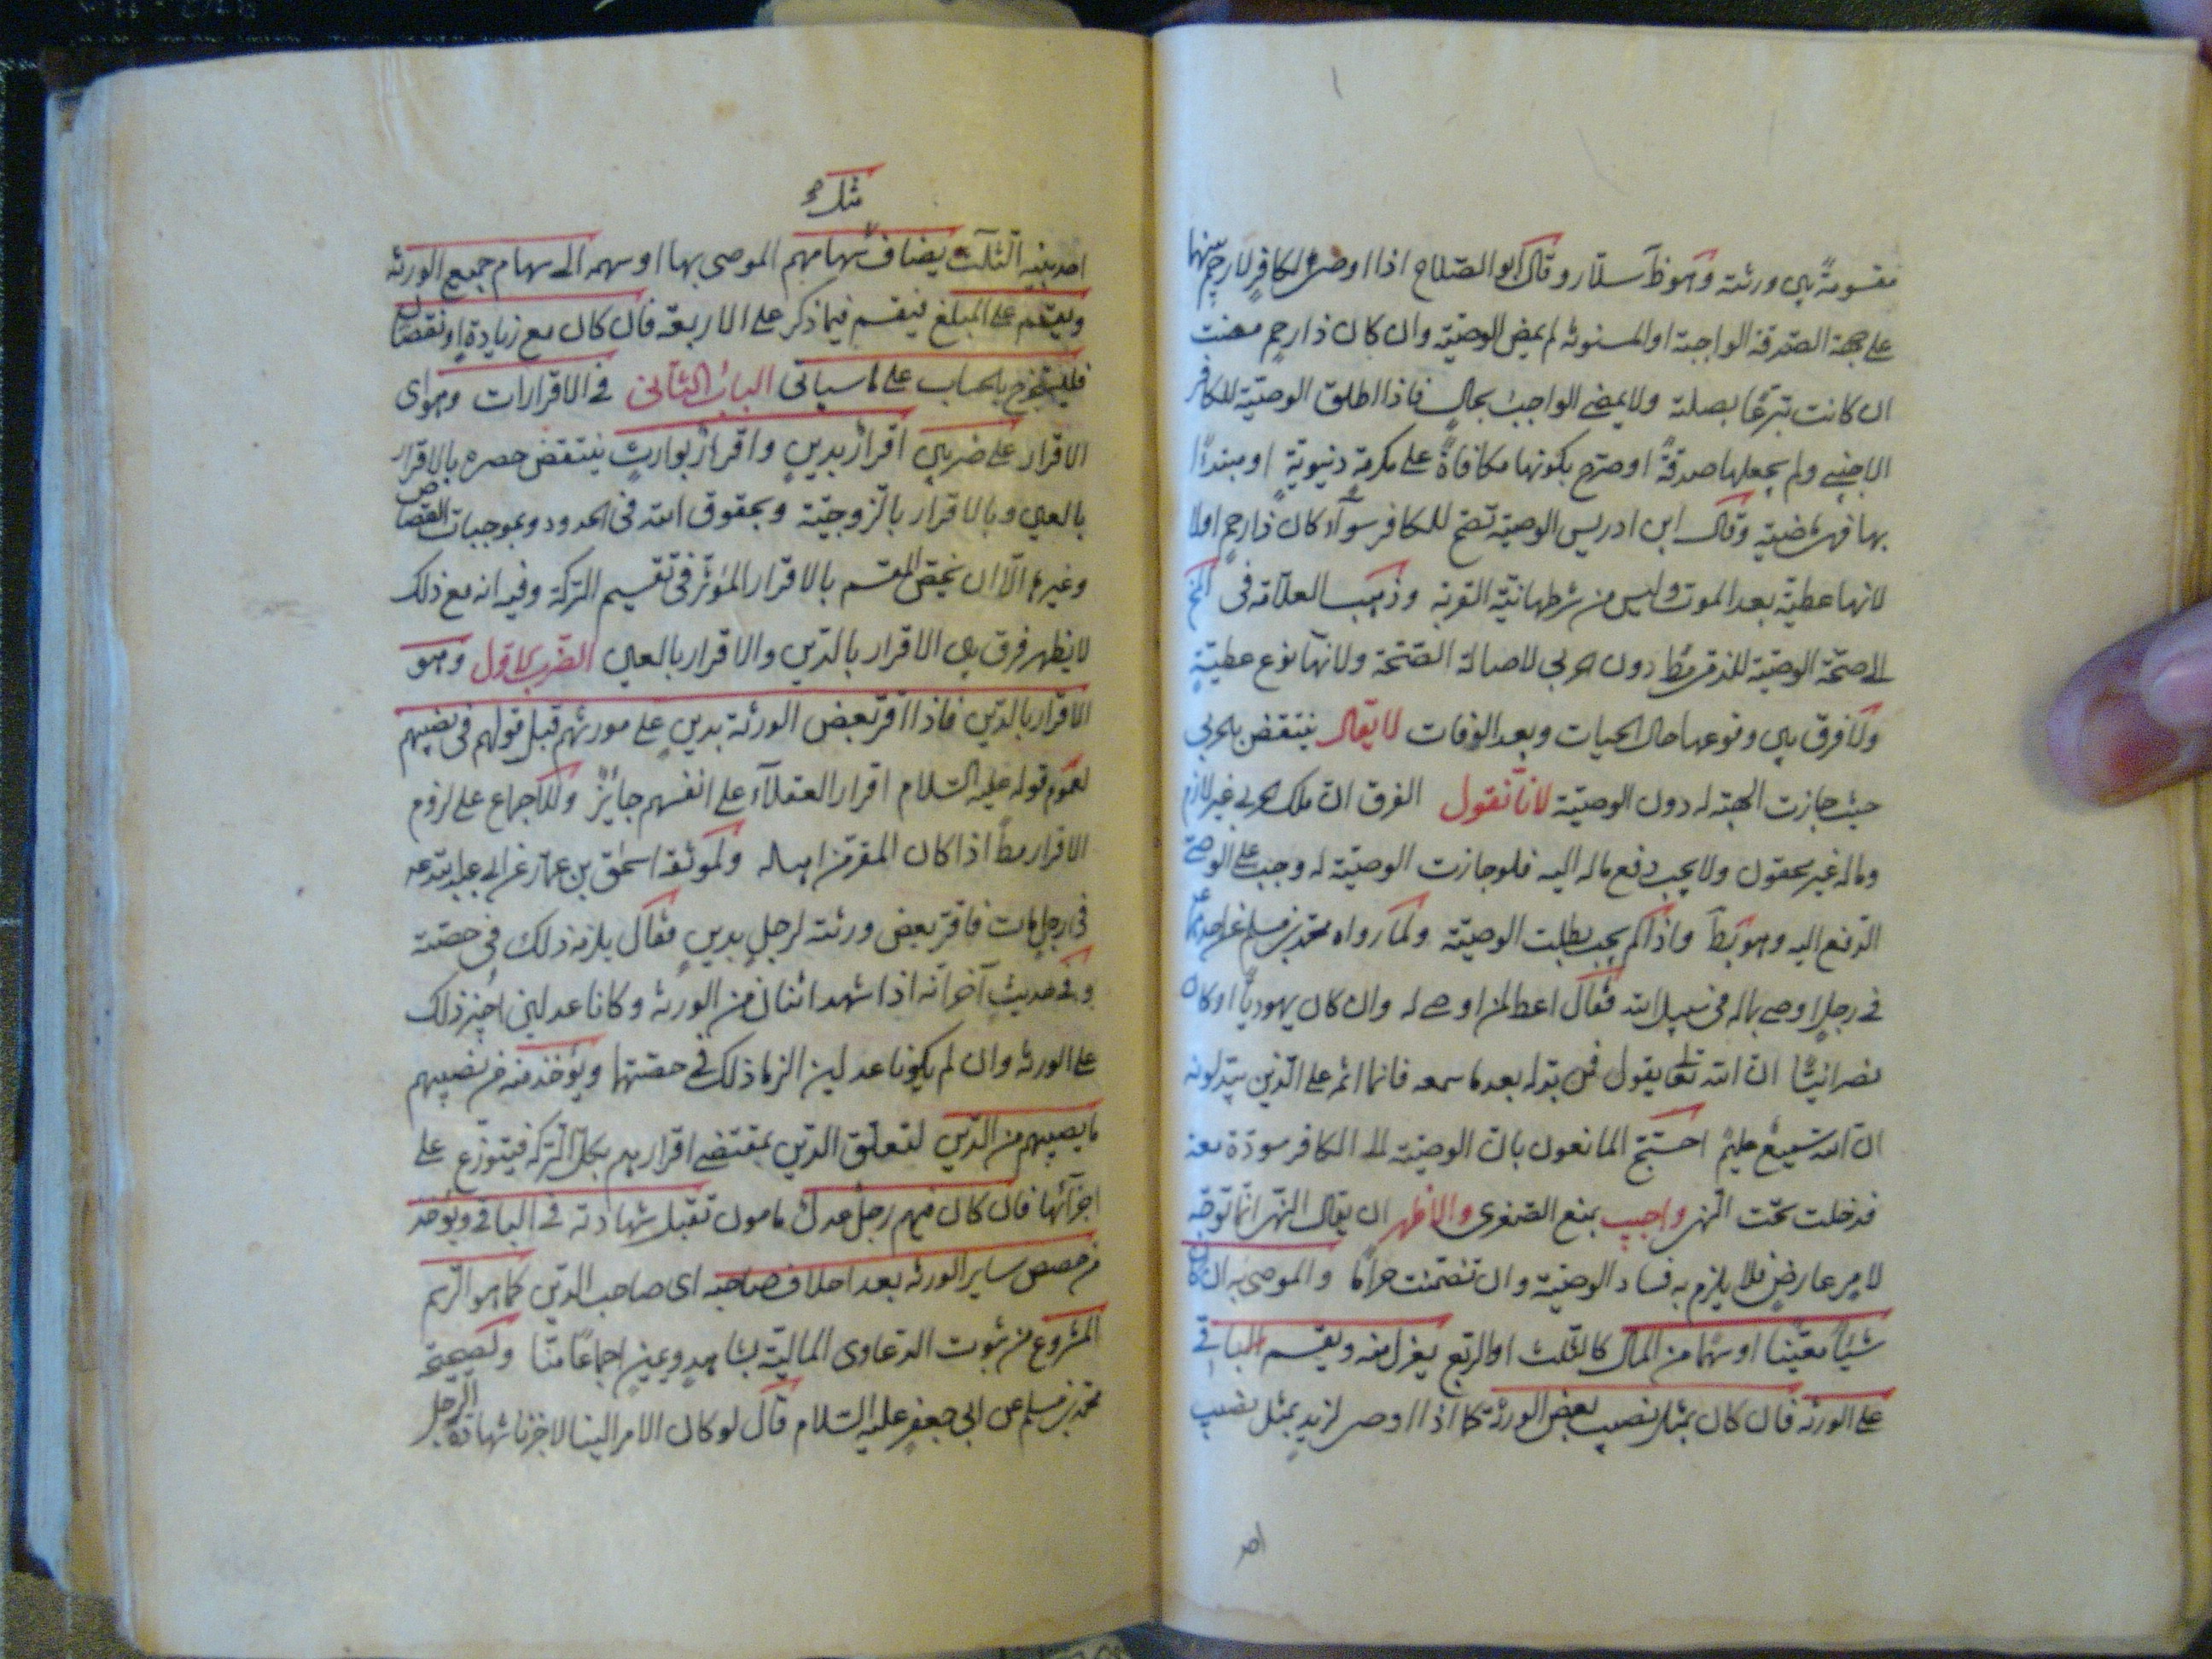 مقسومةً بين ورثته وهو ظ سلّار وقال ابو الصّلاح اذا اوصى لكافرٍ لا رحم بينهما
على جهة الصّدقة الواجبة او المسنونة لم يمض الوصيّة وان كان ذا رحمٍ مضت
ان كانت تبرّعًا بصلة ولا يمضى الواجب بحالٍ فاذا اطلق الوصيّة للكافر
الاجنبى ولم يجعلها صدقةً او صرّح بكونها مكافاةً على مكرمةٍ دنيويةٍ او مبتدءًا
بها فهى ماضية وقال ابن ادريس الوصية تصحّ للكافر سوآء كان ذا رحمٍ اولا
لانها عطيّة بعد الموت وليس من شرطها نيّة القربة وذهب العلّامة فى
الى صحّة الوصيّة للذمى مط دون الحربى لاصالة الصّحّة ولانّها نوع عطيّةٍ
ولا فرق بين وقوعها حال الحيات وبعد الوفات لا يقال ينتقض بالحربى
حيث جازت الهبة له دون الوصيّة لانّا نقول الفرق انّ ملك الحربى غير لازم
وماله غير محقون ولا يجب دفع ماله اليه فلو جازت الوصيّة له وجب على الوصى
الدفع اليه وهو بط واذا لم يجب بطلت الوصيّة ولما رواه محمد بن مسلم عن احدهما ع
فى رجلٍ اوصى بماله فى سبيل الله فقال اعط لمن اوصى له وان كان يهوديًّا او كان
نصرانيًّا انّ الله تعالى يقول فمن بدّله بعد ما سمعه فانما اثمه على الّذين يبدّلونه
انّ الله سميعٌ عليمٌ احتجّ المانعون بانّ الوصيّة للكافر مودّة
فدخلت تحت النّهى واجيب بمنع الصّغرى والاظهر ان يقال النّهى انّما توجّه
لامرٍ عارضٍ فلا يلزم به فساد الوصيّة وان تضمّنت حرامًا والموصى به ان كان
شيئًا معيّنا او سهمًا من المال كالثلث او الربع يعزل منه ويقسم الباقى
على الورثه فان كان بمثل نصيب بعض الورثة كما اذا اوصى لزيدٍ بمثل نصيب
احد
مثلًا
احد بنيه الثلث يضاف سهامهم الموصى بها او سهمه الى سهام جميع الورثه
ويقسم على المبلغ فيقسم فيما ذكر على الاربعة فان كان مع زيادةٍ او نقصان
فليستخرج بالحساب على ما سياتى الباب الثانى فى الاقرارات وهو اى
الاقرار على ضربين اقرارٌ بدينٍ واقرارٌ بوارثٍ ينتقض حصره بالاقرار
بالعين وبالاقرار بالزّوجيّة وبحقوق الله فى الحدود وبموجبات القصاص
وغيرها الّا ان يخصّ المقسم بالاقرار المؤثّر فى تقسيم التركة وفيه انه مع ذلك
لا يظهر فرق بين الاقرار بالدّين والاقرار بالعين الضرب الاول وهو
الاقرار بالدّين فاذا اقرّ بعض الورثة بدينٍ على مورثهم قبل قولهم فى نصيبهم
لعموم قوله عليه السّلام اقرار العقلآء على انفسهم جائزٌ وللاجماع على لزوم
الاقرار مطًا اذا كان المقر من اهله ولموثقه اسحق بن عمّار عن ابى عبد الله ع
فى رجلٍ مات فاقرّ بعض ورثته لرجلٍ بدينٍ فقال يلزمه ذلك فى حصّته
وفى حديثٍ آخر انّه اذا شهد اثنان من الورثه وكانا عدلين اُجيز ذلك
على الورثه وان لم يكونا عدلين الزما ذلك فى حصّتهما ويؤخذ منه من نصيبهم
ما يصيبهم من الدّين لتعلّق الدّين بمقتضى اقرارهم بكل التركه فيتوزّع على
اجزآئها فان كان فيهم رجل عدل مامون تقبل شهادته فى الباقى ويؤخذ
من حصص ساير الورثه بعد احلاف صاحبه اى صاحب الدّين كما هو الرّسم
المشروع من ثبوت الدّعاوى الماليّة بشاهدٍ ويمينٍ اجماعًا منّا ولصحيحة
محمد بن مسلم عن ابى جعفرٍ عليه السّلام قال لو كان الامر الينا لاجزنا شهادة الرّجل